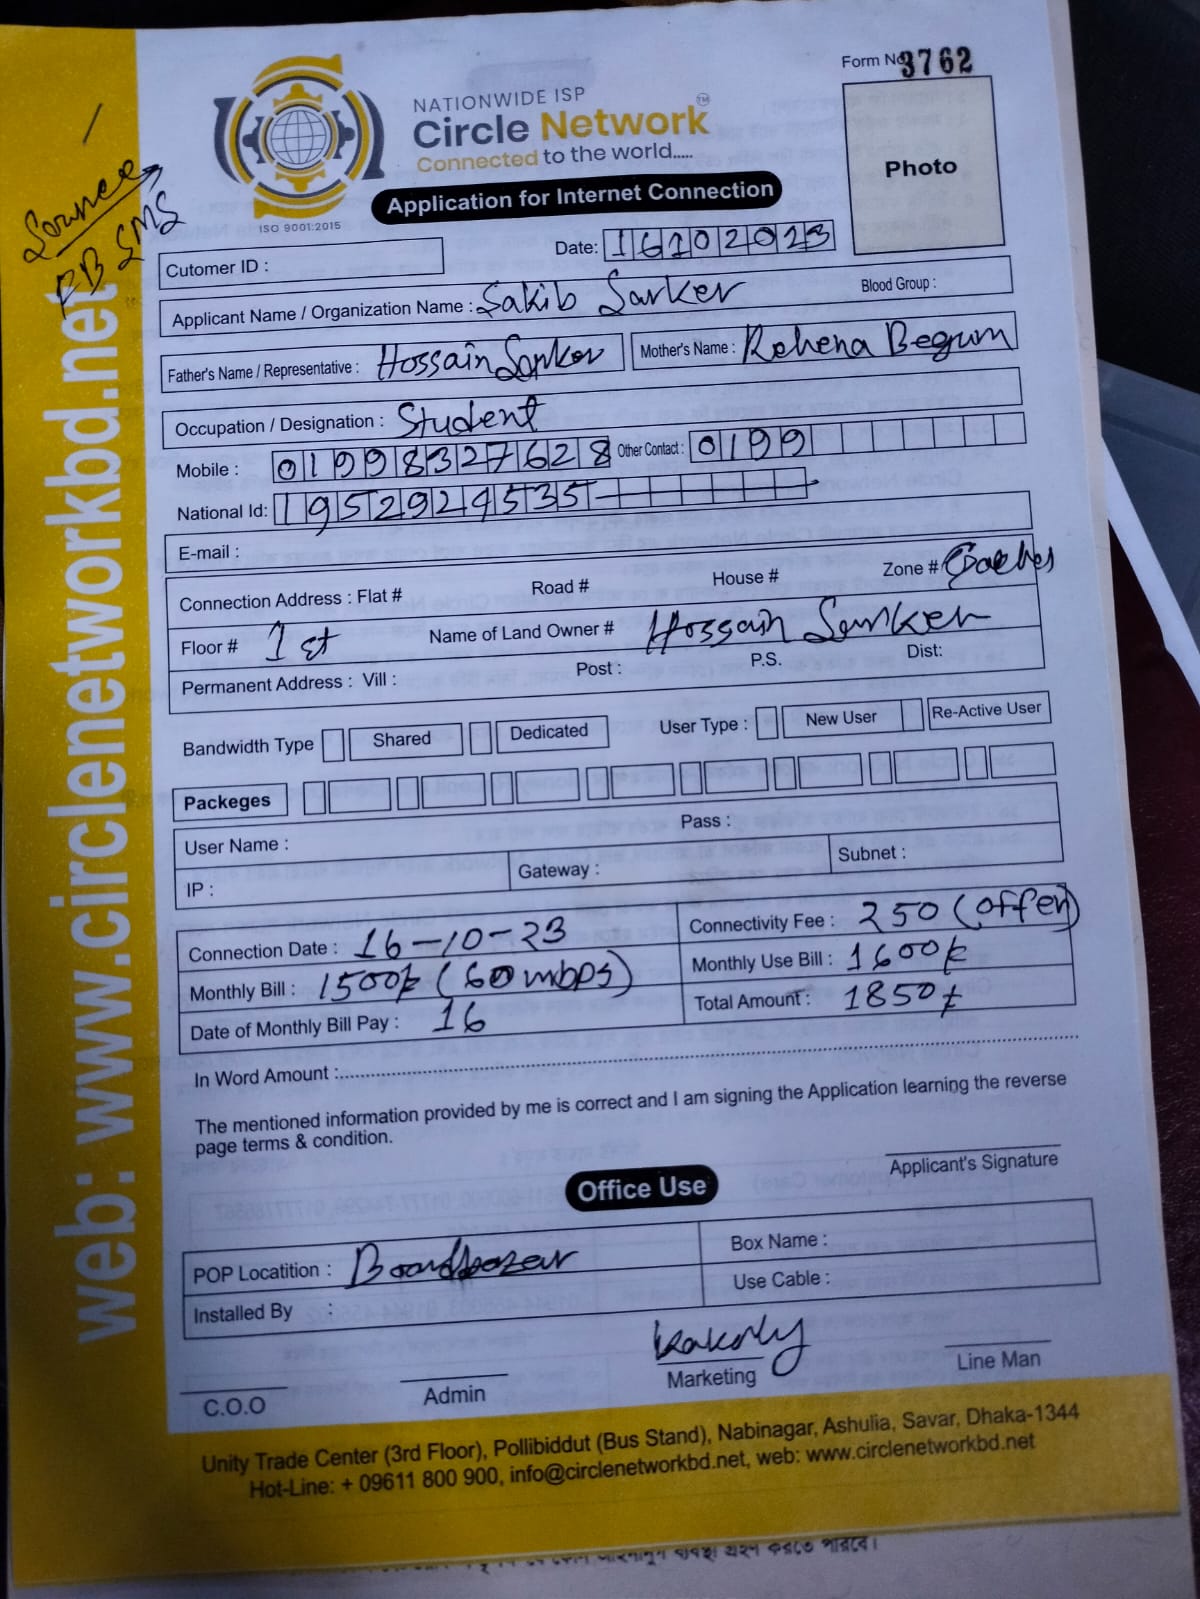 Form No 3762
NATIONWIDE ISP
Circle Network TM
Connected to the world.....
ISO 9001:2015
Application for Internet Connection
Photo
Source
FB SMS
web: www.circlenetworkbd.net
Cutomer ID :
Date: 16102023
Applicant Name / Organization Name : Sakib Sarker Blood Group :
Father's Name / Representative : Hossain Sarker Mother's Name : Rehena Begum
Occupation / Designation : Student
Mobile : 01998327628 Other Contact : 0199
National Id: 1952924535
E-mail :
Connection Address : Flat # Road # House # Zone #
Floor # 1st Name of Land Owner # Hossain Sarker
Permanent Address : Vill : Post : P.S. Dist:
Bandwidth Type Shared Dedicated User Type : New User Re-Active User
Packeges
User Name : Pass :
IP : Gateway : Subnet :
Connection Date : 16-10-23 Connectivity Fee : 250 (offer)
Monthly Bill : 1500 (60 mbps) Monthly Use Bill : 1600
Date of Monthly Bill Pay : 16 Total Amount : 1850
In Word Amount :
The mentioned information provided by me is correct and I am signing the Application learning the reverse
page terms & condition.
Applicant's Signature
Office Use
POP Locatition : Boardbazar Box Name :
Installed By : Use Cable :
Kakoly
C.O.O Admin Marketing Line Man
Unity Trade Center (3rd Floor), Pollibiddut (Bus Stand), Nabinagar, Ashulia, Savar, Dhaka-1344
Hot-Line: + 09611 800 900, info@circlenetworkbd.net, web: www.circlenetworkbd.net
গ্রহণ করতে পারবে।